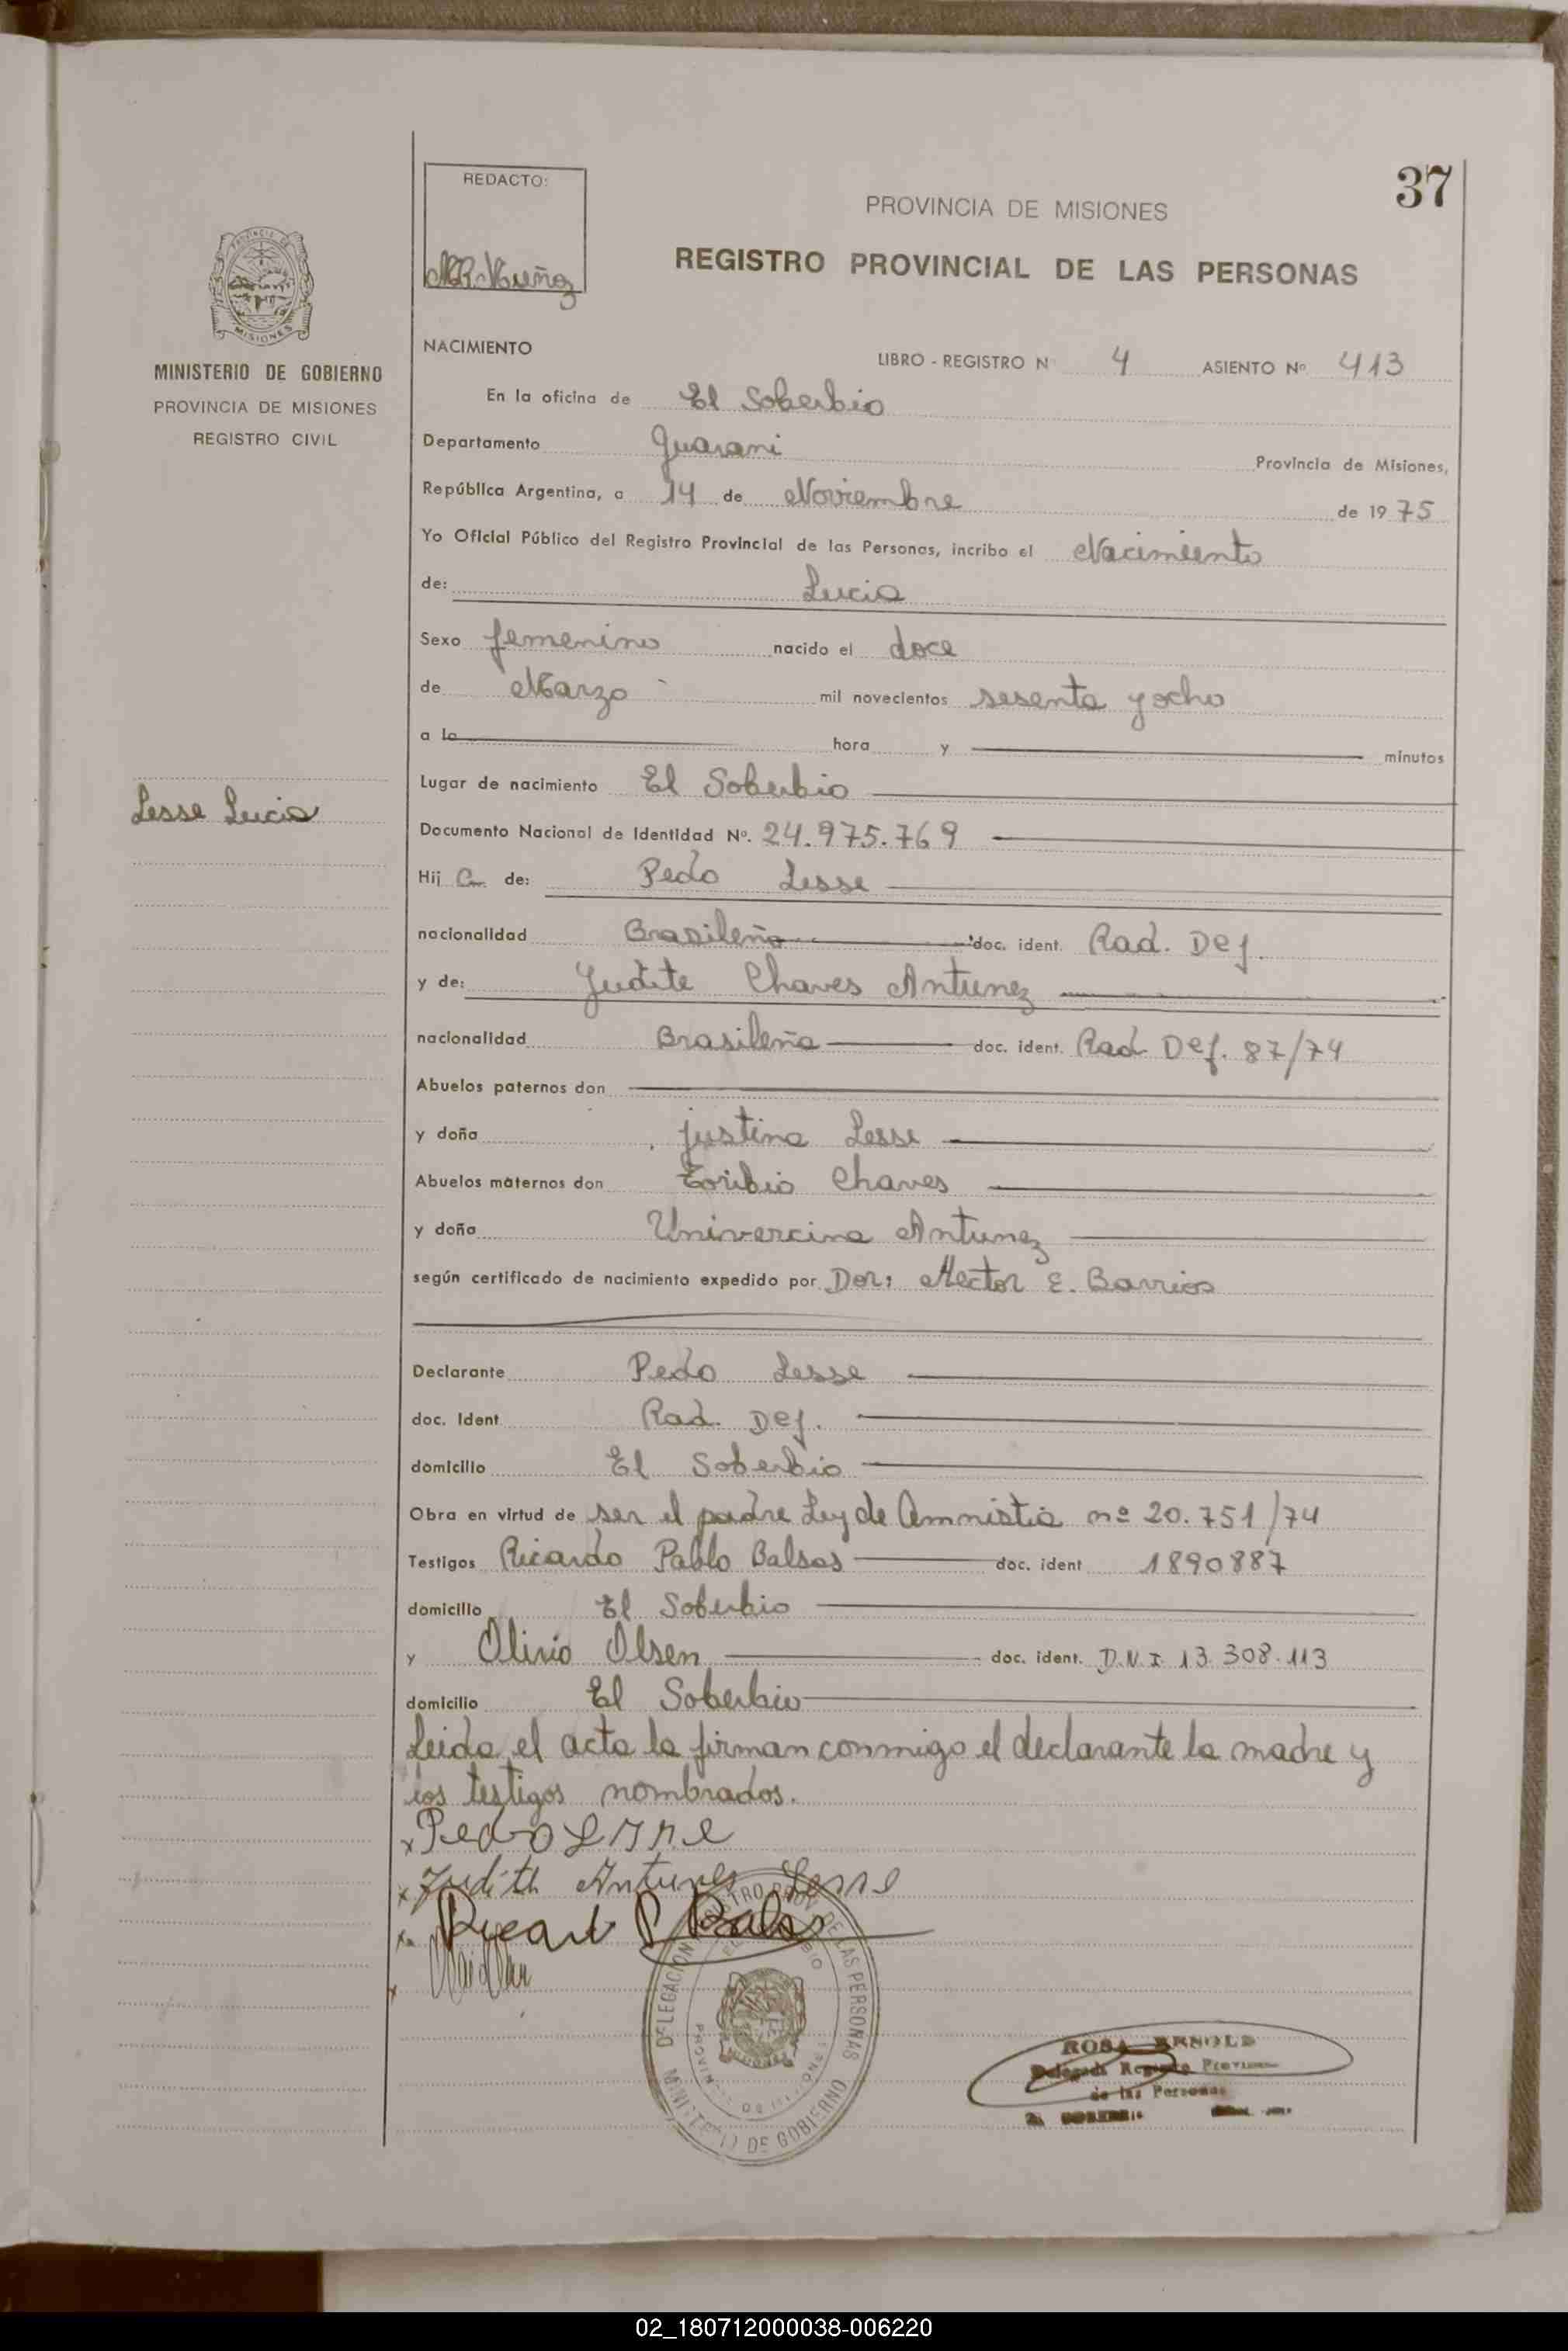 37
REDACTO:
PROVINCIA DE MISIONES
REGISTRO PROVINCIAL DE LAS PERSONAS
MINISTERIO DE GOBIERNO
PROVINCIA DE MISIONES
REGISTRO CIVIL
NACIMIENTO
LIBRO - REGISTRO N 4 ASIENTO Nº 413
En la oficina de El Soberbio
Departamento Guarani Provincia de Misiones,
República Argentina, a 14 de Noviembre de 1975
Yo Oficial Público del Registro Provincial de las Personas, incribo el Nacimiento
de: Lucia
Sexo femenino nacido el doce
de Marzo mil novecientos sesenta y ocho
a la hora y minutos
Lugar de nacimiento El Soberbio
Lesse Lucia
Documento Nacional de Identidad Nº. 24.975.769
Hij a de: Pedo Lesse
nacionalidad Brasileña doc. ident. Rad. Def.
y de: Judite Chaves Antunez
nacionalidad Brasileña doc. ident. Rad Def. 87/74
Abuelos paternos don
y doña justina Lesse
Abuelos maternos don Toribio Chaves
y doña Univercina Antunez
según certificado de nacimiento expedido por Dor: Hector E. Barrios
Declarante Pedo Lesse
doc. Ident Rad. Def.
domicilio El Soberbio
Obra en virtud de ser el padre Ley de Amnistia nº 20.751/74
Testigos Ricardo Pablo Balsas doc. ident 1890887
domicilio El Soberbio
y Olivio Olsen doc. ident. D.N.I 13.308.113
domicilio El Soberbio
Leida el acta la firman conmigo el declarante la madre y
los testigos nombrados.
x Pedro
x Judith Antunes
DELEGACION REGISTRO PROV. DE LAS PERSONAS
MINISTERIO DE GOBIERNO
ROSA ARNOLD
Delegada Registro
de las Personas
02_180712000038-006220